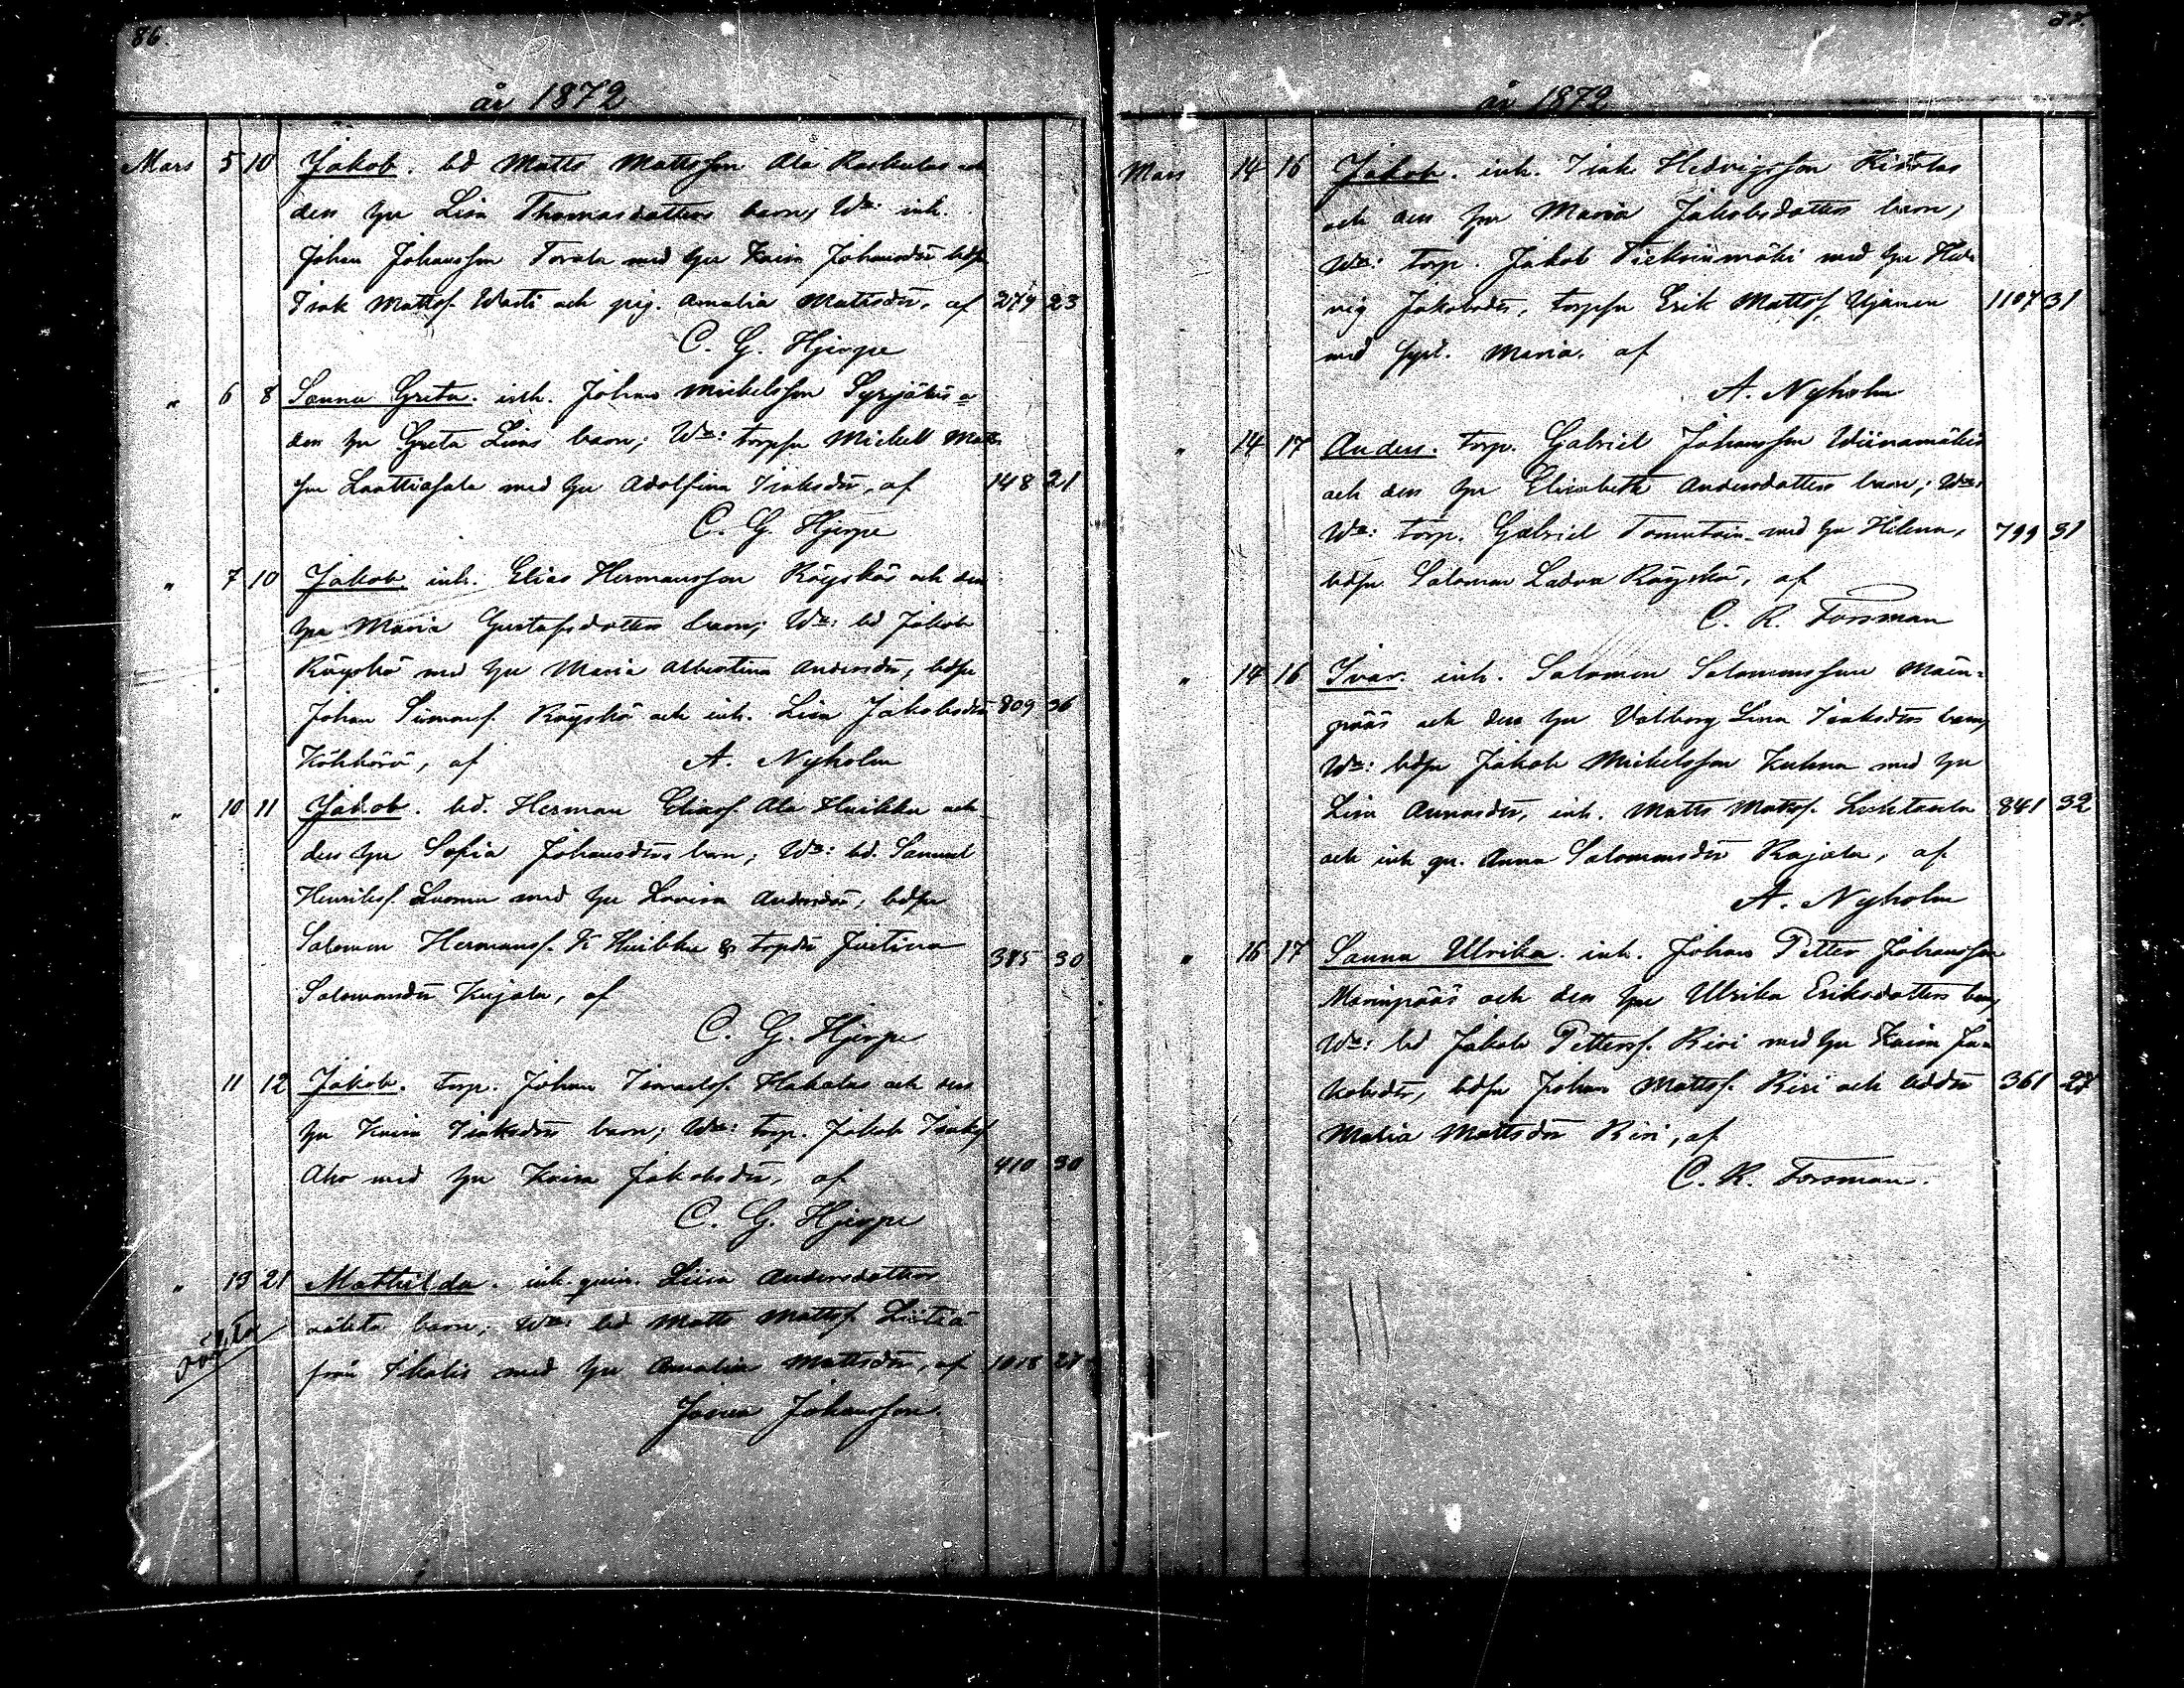 86.
år 1872
Mars 5 10 Jakob. bd Matts Mattsson Ala
den hu Lisa Thomasdotters barn; Wn: inh.
Johan Johansson Torala med hu Kaisa Johansdr bdsn
Isak Mattss. Wasti och pig. Amalia Mattsdr, af 279 23
C. G. Hjerpe
" 6 8 Sanna Greta. inh. Johan Mickelsson Syrjäkis o
den hu Greta Lisas barn; Wn: torpsn Mickell Matts
son Laattiasala med hu Adolfina Isaksdr, af 148 21
C. G. Hjerpe
" 7 10 Jakob. inh. Elias Hermansson Röyskös och den
hu Maria Gustafsdotters barn; Wn: bd Jakob
Röyskö med hu Maria Albertina Andersdr, bdsn
Johan Simonss. Röyskö och inh. Lisa Jakobsdr 809 36
Köhkörö, af A. Nyholm
" 10 11 Jakob. bd. Herman Eliass. Ala Huikku och
den hu Sofia Johansdrs barn; Wn: bd. Samuel
Henrikss. Luoma med hu Lovisa Andersdr, bdsn
Salomon Hermanss. Y Huikku & torpdr Justina 385 30
Salomonsdr Kujala, af
C. G. Hjerpe
11 12 Jakob. torp. Johan Ismaelss. Hakalas och den
hu Kaisa Isaksdrs barn; Wn: torp. Jakob Isakss
Aho med hu Kaisa Jakobsdr, af 410 30
C. G. Hjerpe
" 13 21 Mathilda. inh. qvin. Lisa Andersdotters
oäkta oäkta barn; Wn: bd Matts Mattss.
från Ikalis med hu Amalia Mattsdr, af 1018 27
Josua Johansson.
87.
år 1872
Mars 14 16 Jakob. inh. Isak Hedvigsson
och den hu Maria Jakobsdotters barn;
Wn: torp. Jakob med hu Hed-
vig Jakobsdr, torpsn Erik Mattss. Ujanen 1107 31
med syst. Maria. af
A. Nyholm
" 14 17 Anders. torp. Gabriel Johansson Wiinamäkis
och den hu Elisabeth Andersdotters barn; Wn:
Wn: torp. Gabriel med hu Helena, 799 31
bdsn Salomon Ladva Röyskö, af
C. R. Forsman
" 14 16 Ivar. inh. Salomon Salomonsson Mäen-
pääs och den hu Valborg Lisa Isaksdrs barn;
Wn: bdsn Jakob Mickelsson Kuhna med hu
Lisa Aunasdr, inh. Matts Mattss. Lehtonen 841 32
och inh qv. Anna Salomonsdr Rajala, af
A. Nyholm
" 16 17 Sanna Ulrika. inh. Johan Petter Johansson
Mäenpääs och den hu Ulrika Eriksdotters barn;
Wn: bd Jakob Petterss. Risi med hu Kaisa Ja-
kobsdr, bdsn Johan Mattss. Risi och bddr 361 27
Maria Mattsdr Risi, af
C. R. Forsman.